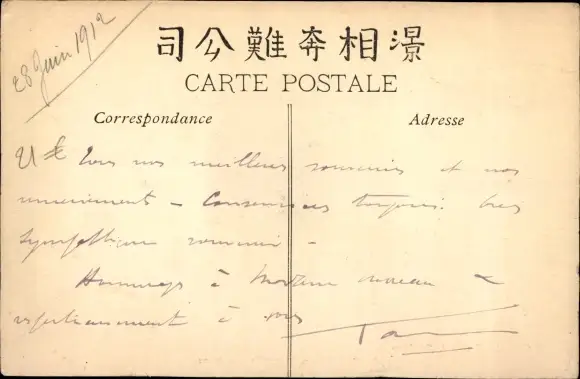 28 Juin 1912
司公難奔相澋
CARTE POSTALE
Correspondance
Adresse
Tous nos meilleurs souvenirs et nos
remerciements – toujours très
sympathique souvenir –
Hommages à Madame &
respectueusement à vous